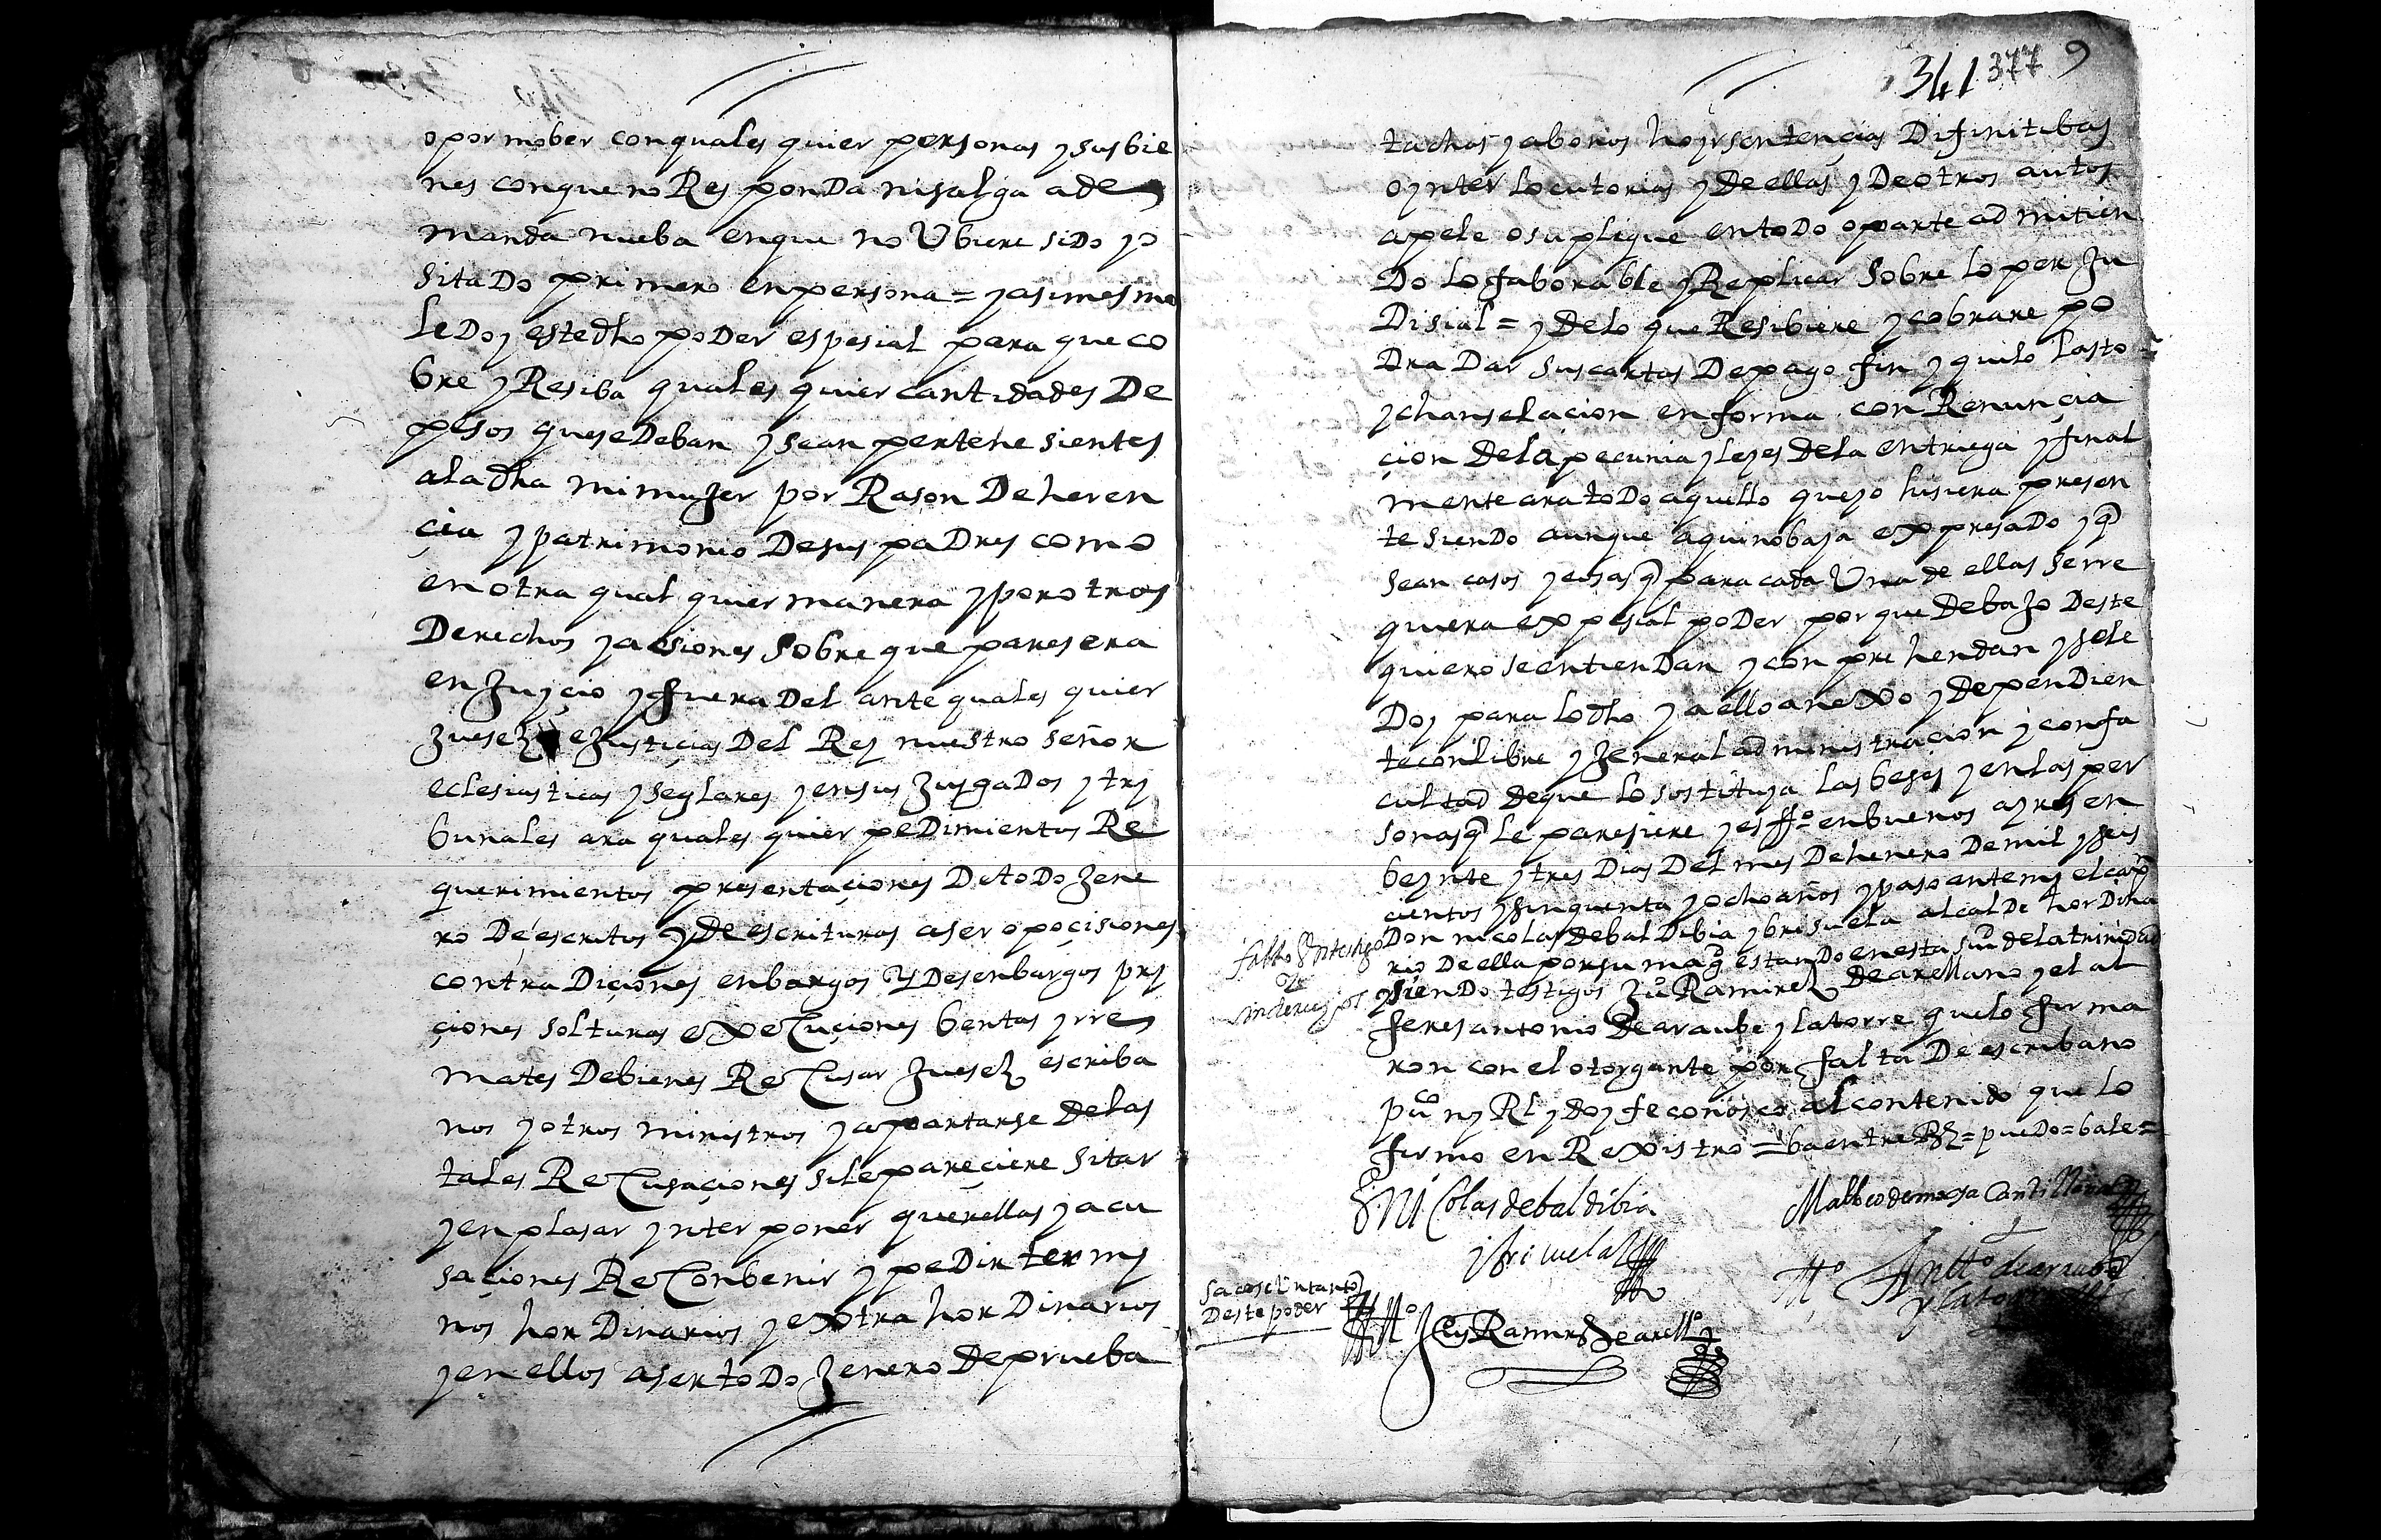 opormober conquales quier personas y sus bie
nes conque no Responda ni salga a de
manda nueba en que no Ubiere sido
sitado primero en persona = y asimesmo
le Doy este dho poder espesial para que co
bre y Resiba quales quier cantidades De
pesos que se Deban y sean pertenesientes
a la dha mi muger por Rason De heren
çia y patrimonio De sus padres como
en otra qual quier manera y por otros
Derechos y acsiones sobre que paresera
en Juyçio y fuera Del ante quales quier
Juesez e Justiçias Del Rey nuestro señor
eclesiasticas y seglares y en sus Jusgados y try
bunales ara quales quier pedimientos Re
querimientos presentaçiones De todo Jene
ro De escritos y De escrituras aser opoçisiones
contradiçiones enbargos y Desenbargos pry
çiones solturas execuçiones bentas y rre
mates De bienes Recusar Juesez escriba
nos y otros ministros y apartarse de las
tales Recusaçiones si le pareçiere sitar
y enplasar ynterponer querellas y acu
saçiones Reconbenir y pedir termy
nos hordinarios y extrahordinarios
y en ellos aser todo Jenero de prueba
341 377 9
tachas y abonos hoyr sentençias Difinitibas
o ynterlocutorias y De ellas y De otros autos
apele o suplique en todo o parte admitien
Do lo faborable y Replicar sobre lo perju
Disial = y De lo que Resibiere y cobrare po
Dra Dar sus cartas De pago fin y quito lasto
y chanselaçion en forma con Renunçia
çion De la pecunia y leyes De la entriega y final
mente ara todo aquello que yo hisiera presen
te siendo aunque aqui no baya expresado y q
sean casos y cosas q para cada Una de ellas se rre
quiera expesial poder por que Debajo Deste
quiero se entiendan y conprehendan y se le
Doy para lo dho y a ello anexo y Dependien
te con libre y Jeneral administracion y con fa
cultad de que lo sostituya las beses y en las per
sonas q le paresiere y es ffo en buenos ayres en
beynte y tres Dias Del mes De henero De mil y seis
cientos y sinquenta y ocho años y paso ante my el capn
Don nicolas de baldibia y brisuela alcalde hordina
rio De ella por su magd estando en esta siud de la trinidad
y siendo testigos Ju Ramirez De arellano y el al
feres antonio de araube y la torre que lo firma
ron con el otorgante por falta De escribano
puco ny Rl y doy fe conosco al contenido que lo
firmo en Rexistro = ba entre Rs = puedo = bale =
falto
sin derechos
Dn Nicolas de baldibia
y brizuela
Matheo de mesa Cantillana
to Anto de araube
y la torre
Sacose Un tanto
Deste poder
to Ramirez de arello